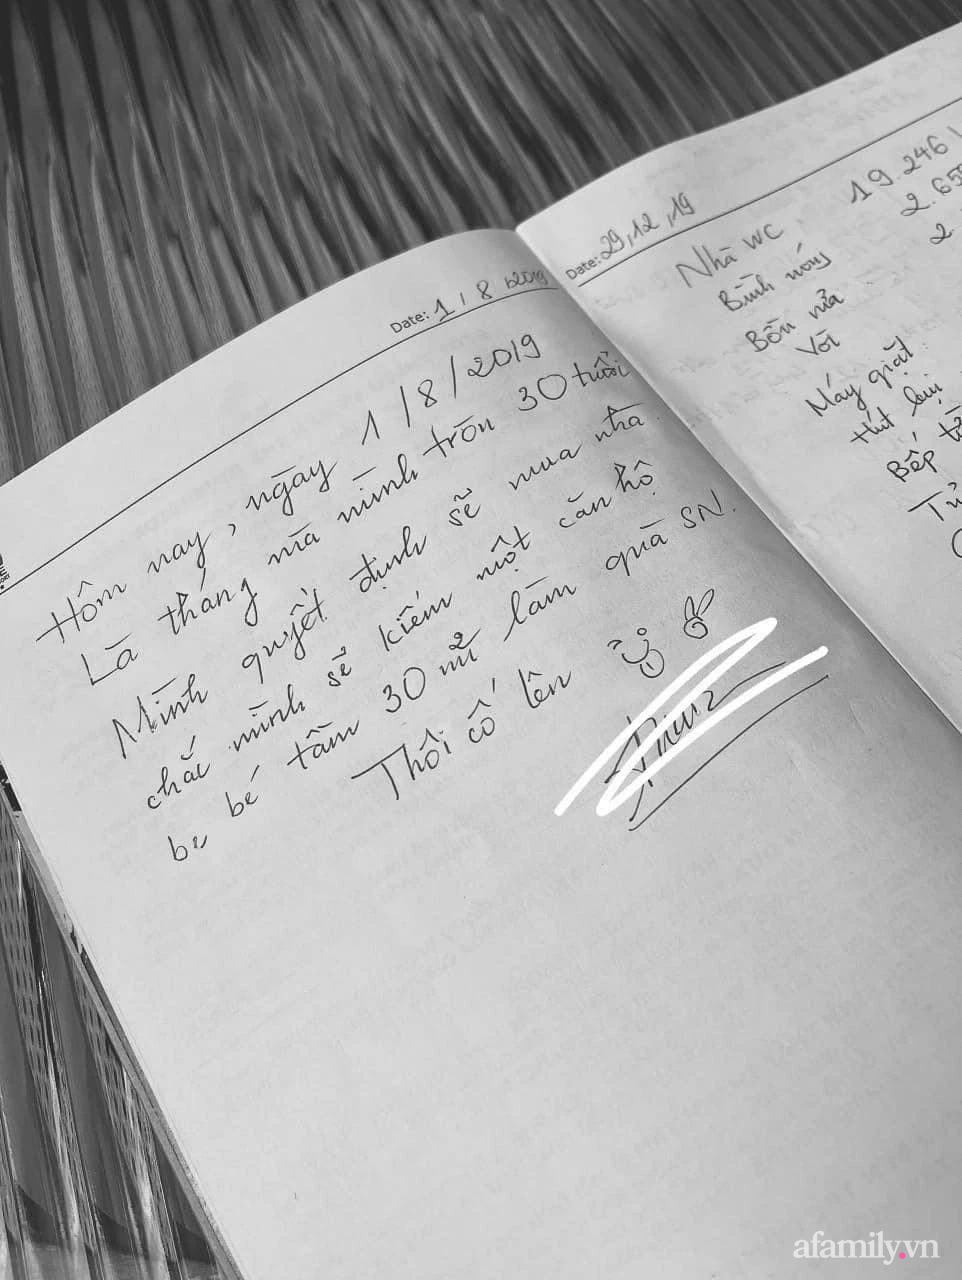 Date: 1 / 8 / 2019
Hôm nay, ngày 1/8/2019
Là tháng mà mình tròn 30 tuổi
Mình quyết định sẽ mua nhà.
chắc mình sẽ kiếm một căn hộ
be bé tầm 30 m2 làm quà SN.
Thôi cố lên
Date: 29, 12, 19
Nhà WC 19.246
Bình nóng 2.65
Bồn rửa 2.
Vòi
Máy giặt
Hút bụi
Bếp từ
afamily.vn